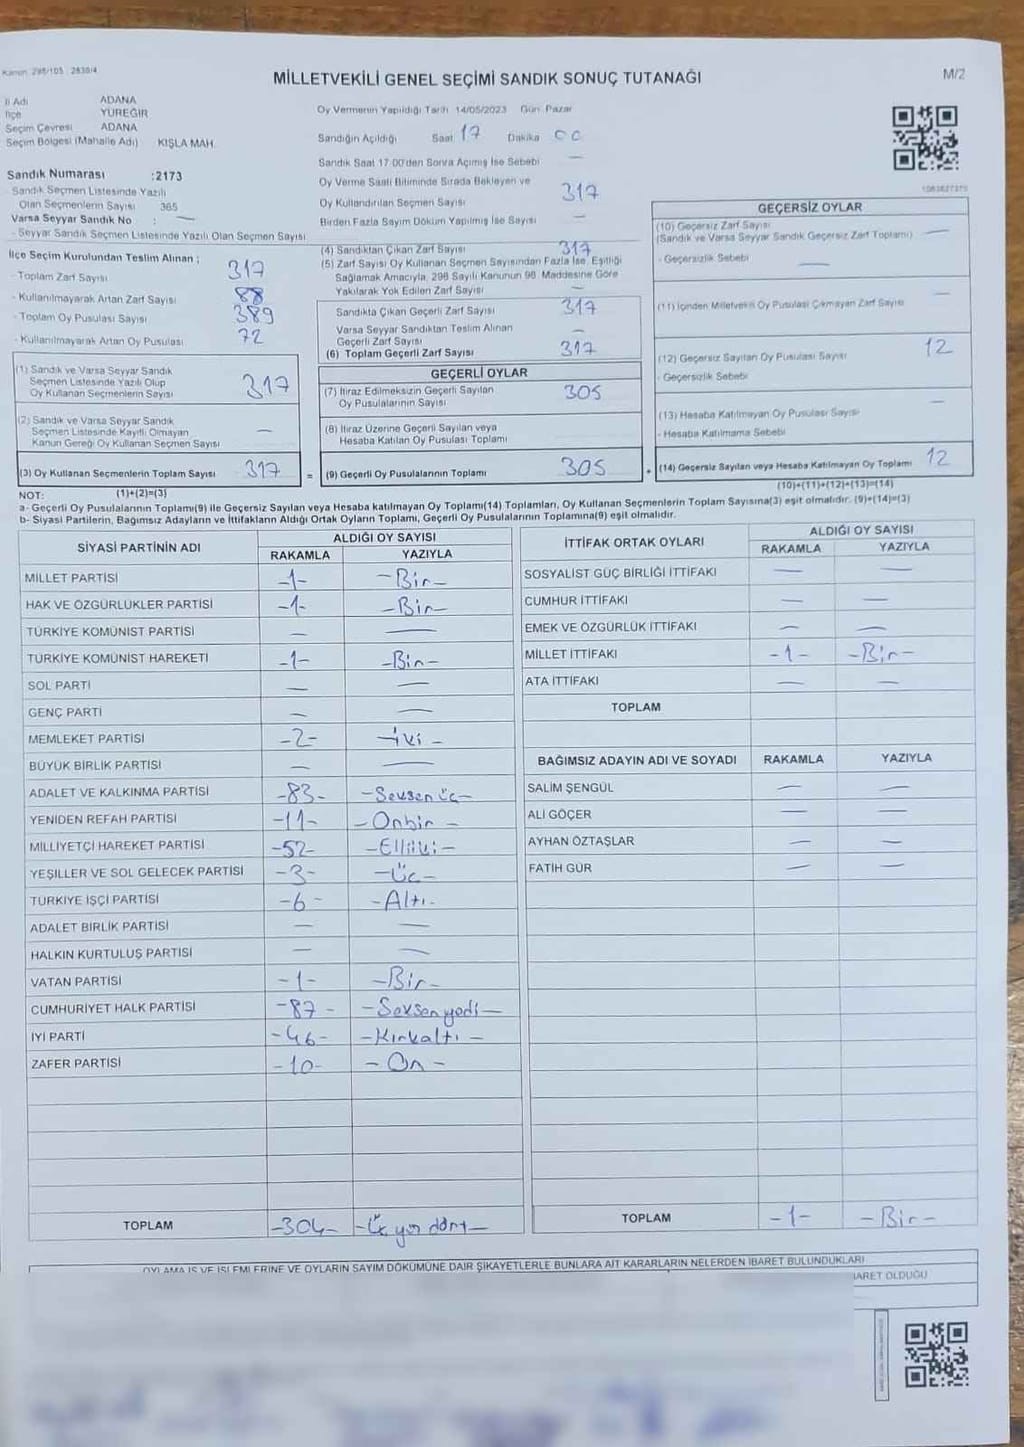 Kanun: 298/105 ; 2839/4
MİLLETVEKİLİ GENEL SEÇİMİ SANDIK SONUÇ TUTANAĞI
M/2
İl Adı ADANA
İlçe YÜREĞİR
Seçim Çevresi ADANA
Seçim Bölgesi (Mahalle Adı) KIŞLA MAH.
Sandık Numarası :2173
- Sandık Seçmen Listesinde Yazılı
Olan Seçmenlerin Sayısı 365
Varsa Seyyar Sandık No : —
- Seyyar Sandık Seçmen Listesinde Yazılı Olan Seçmen Sayısı
Oy Vermenin Yapıldığı Tarih 14/05/2023 Gün Pazar
Sandığın Açıldığı Saat 17 Dakika 00
Sandık Saat 17:00'den Sonra Açılmış İse Sebebi —
Oy Verme Saati Bitiminde Sırada Bekleyen ve
Oy Kullandırılan Seçmen Sayısı 317
Birden Fazla Sayım Döküm Yapılmış İse Sayısı —
İlçe Seçim Kurulundan Teslim Alınan ;
- Toplam Zarf Sayısı 317
- Kullanılmayarak Artan Zarf Sayısı 88
- Toplam Oy Pusulası Sayısı 389
- Kullanılmayarak Artan Oy Pusulası 72
(1) Sandık ve Varsa Seyyar Sandık
Seçmen Listesinde Yazılı Olup
Oy Kullanan Seçmenlerin Sayısı 317
(2) Sandık ve Varsa Seyyar Sandık
Seçmen Listesinde Kayıtlı Olmayan
Kanun Gereği Oy Kullanan Seçmen Sayısı —
(3) Oy Kullanan Seçmenlerin Toplam Sayısı 317 =
(4) Sandıktan Çıkan Zarf Sayısı 317
(5) Zarf Sayısı Oy Kullanan Seçmen Sayısından Fazla İse, Eşitliği
Sağlamak Amacıyla, 298 Sayılı Kanunun 98. Maddesine Göre
Yakılarak Yok Edilen Zarf Sayısı —
Sandıkta Çıkan Geçerli Zarf Sayısı 317
Varsa Seyyar Sandıktan Teslim Alınan
Geçerli Zarf Sayısı —
(6) Toplam Geçerli Zarf Sayısı 317
GEÇERLİ OYLAR
(7) İtiraz Edilmeksizin Geçerli Sayılan
Oy Pusulalarının Sayısı 305
(8) İtiraz Üzerine Geçerli Sayılan veya
Hesaba Katılan Oy Pusulası Toplamı
(9) Geçerli Oy Pusulalarının Toplamı 305 +
GEÇERSİZ OYLAR
(10) Geçersiz Zarf Sayısı
(Sandık ve Varsa Seyyar Sandık Geçersiz Zarf Toplamı) —
- Geçersizlik Sebebi —
(11) İçinden Milletvekili Oy Pusulası Çıkmayan Zarf Sayısı —
(12) Geçersiz Sayılan Oy Pusulası Sayısı 12
- Geçersizlik Sebebi
(13) Hesaba Katılmayan Oy Pusulası Sayısı —
- Hesaba Katılmama Sebebi
(14) Geçersiz Sayılan veya Hesaba Katılmayan Oy Toplamı 12
NOT: (1)+(2)=(3)
(10)+(11)+(12)+(13)=(14)
a- Geçerli Oy Pusulalarının Toplamı(9) ile Geçersiz Sayılan veya Hesaba katılmayan Oy Toplamı(14) Toplamları, Oy Kullanan Seçmenlerin Toplam Sayısına(3) eşit olmalıdır. (9)+(14)=(3)
b- Siyasi Partilerin, Bağımsız Adayların ve İttifakların Aldığı Ortak Oyların Toplamı, Geçerli Oy Pusulalarının Toplamına(9) eşit olmalıdır.
SİYASİ PARTİNİN ADI ALDIĞI OY SAYISI
RAKAMLA YAZIYLA
MİLLET PARTİSİ -1- -Bir-
HAK VE ÖZGÜRLÜKLER PARTİSİ -1- -Bir-
TÜRKİYE KOMÜNİST PARTİSİ — —
TÜRKİYE KOMÜNİST HAREKETİ -1- -Bir-
SOL PARTİ — —
GENÇ PARTİ — —
MEMLEKET PARTİSİ -2- -iki-
BÜYÜK BİRLİK PARTİSİ — —
ADALET VE KALKINMA PARTİSİ -83- -Seksen üç-
YENİDEN REFAH PARTİSİ -11- -Onbir-
MİLLİYETÇİ HAREKET PARTİSİ -52- -Elliiki-
YEŞİLLER VE SOL GELECEK PARTİSİ -3- -Üç-
TÜRKİYE İŞÇİ PARTİSİ -6- -Altı-
ADALET BİRLİK PARTİSİ — —
HALKIN KURTULUŞ PARTİSİ — —
VATAN PARTİSİ -1- -Bir-
CUMHURİYET HALK PARTİSİ -87- -Seksen yedi-
İYİ PARTİ -46- -Kırkaltı-
ZAFER PARTİSİ -10- -On-
TOPLAM -304- -Üç yüz dört-
İTTİFAK ORTAK OYLARI ALDIĞI OY SAYISI
RAKAMLA YAZIYLA
SOSYALİST GÜÇ BİRLİĞİ İTTİFAKI — —
CUMHUR İTTİFAKI — —
EMEK VE ÖZGÜRLÜK İTTİFAKI — —
MİLLET İTTİFAKI -1- -Bir-
ATA İTTİFAKI — —
TOPLAM
BAĞIMSIZ ADAYIN ADI VE SOYADI RAKAMLA YAZIYLA
SALİM ŞENGÜL — —
ALİ GÖÇER — —
AYHAN ÖZTAŞLAR — —
FATİH GÜR — —
TOPLAM -1- -Bir-
OYLAMA İŞ VE İŞLEMLERİNE VE OYLARIN SAYIM DÖKÜMÜNE DAİR ŞİKAYETLERLE BUNLARA AİT KARARLARIN NELERDEN İBARET BULUNDUKLARI
İBARET OLDUĞU